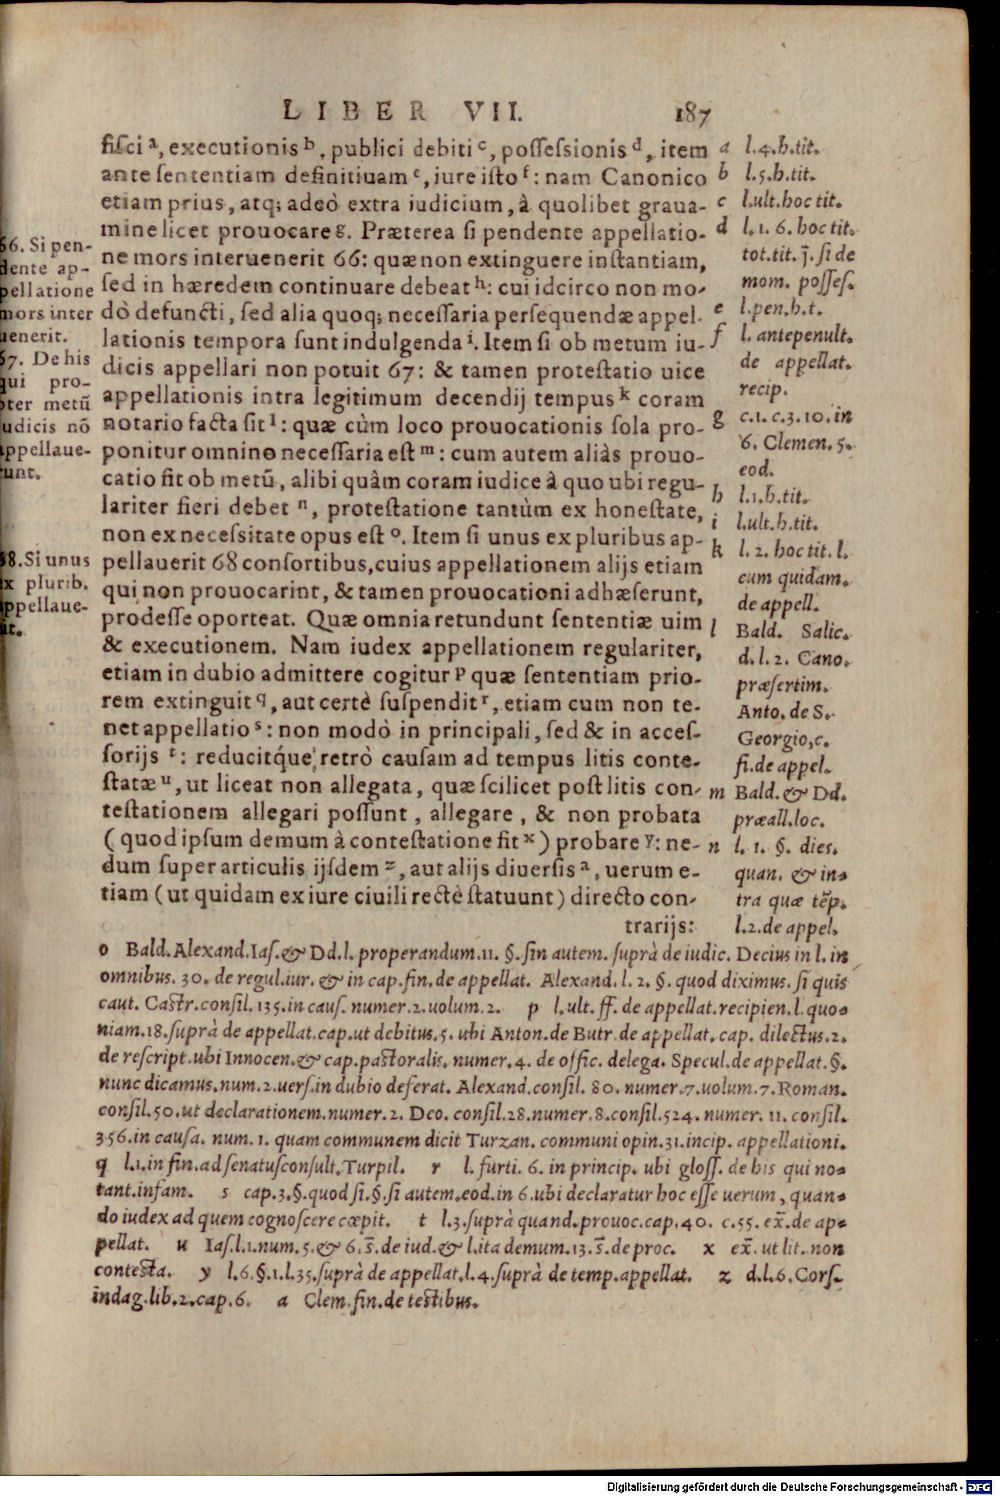 LIBER VII. 187
fisci ᵃ, executionis ᵇ, publici debiti ᶜ, possessionis ᵈ, item
ante sententiam definitiuam ᵉ, iure isto ᶠ: nam Canonico
etiam prius, atq; adeò extra iudicium, à quolibet graua-
mine licet prouocare g. Præterea si pendente appellatio-
ne mors interuenerit 66: quæ non extinguere instantiam,
sed in hæredem continuare debeat ʰ: cui idcirco non mo-
dò defuncti, sed alia quoq; necessaria persequendæ appel-
lationis tempora sunt indulgenda ⁱ. Item si ob metum iu-
dicis appellari non potuit 67: & tamen protestatio uice
appellationis intra legitimum decendij tempus ᵏ coram
notario facta sit ˡ: quæ cùm loco prouocationis sola pro-
ponitur omnino necessaria est ᵐ: cum autem aliàs prouo-
catio fit ob metũ, alibi quâm coram iudice à quo ubi regu-
lariter fieri debet ⁿ, protestatione tantùm ex honestate,
non ex necessitate opus est ᵒ. Item si unus ex pluribus ap-
pellauerit 68 consortibus, cuius appellationem alijs etiam
qui non prouocarint, & tamen prouocationi adhæserunt,
prodesse oporteat. Quæ omnia retundunt sententiæ uim
& executionem. Nam iudex appellationem regulariter,
etiam in dubio admittere cogitur p quæ sententiam prio-
rem extinguit q, aut certè suspendit ʳ, etiam cum non te-
net appellatio ˢ: non modò in principali, sed & in acces-
sorijs ᵗ: reducitq́ue retrò causam ad tempus litis conte-
statæ ᵘ, ut liceat non allegata, quæ scilicet post litis con-
testationem allegari possunt, allegare, & non probata
(quod ipsum demum à contestatione fit ˣ) probare ʸ: ne-
dum super articulis ijsdem ᶻ, aut alijs diuersis ᵃ, uerum e-
tiam (ut quidam ex iure ciuili rectè statuunt) directo con-
trarijs:
66. Si pen-
dente ap-
pellatione
mors inter
uenerit.
67. De his
qui pro-
pter metũ
iudicis nõ
appellaue-
runt.
68. Si unus
ex plurib.
appellaue-
rit.
a l. 4. h. tit.
b l. 5. h. tit.
c l. ult. hoc tit.
d l. 1. 6. hoc tit.
tot. tit. j̄. si de
mom. posses.
e l. pen. h. t.
f l. antepenult.
de appellat.
recip.
g c. 1. c. 3. 10. in
6. Clemen. 5.
eod.
h l. 1. h. tit.
i l. ult. h. tit.
k l. 2. hoc tit. l.
cum quidam.
de appell.
l Bald. Salic.
d. l. 2. Cano.
præsertim.
Anto. de S.
Georgio, c.
fi. de appel.
m Bald. & Dd.
præall. loc.
n l. 1. §. dies.
quan. & in-
tra quæ tẽp.
l. 2. de appel.
o Bald. Alexand. Ias. & Dd. l. properandum. 11. §. sin autem. suprà de iudic. Decius in l. in
omnibus. 30. de regul. iur. & in cap. fin. de appellat. Alexand. l. 2. §. quod diximus. si quis
caut. Castr. consil. 135. in caus. numer. 2. uolum. 2. p l. ult. ff. de appellat. recipien. l. quo-
niam. 18. suprà de appellat. cap. ut debitus. 5. ubi Anton. de Butr. de appellat. cap. dilectus. 2.
de rescript. ubi Innocen. & cap. pastoralis. numer. 4. de offic. delega. Specul. de appellat. §.
nunc dicamus. num. 2. uers. in dubio deferat. Alexand. consil. 80. numer. 7. uolum. 7. Roman.
consil. 50. ut declarationem. numer. 2. Dco. consil. 28. numer. 8. consil. 524. numer. 11. consil.
356. in causa. num. 1. quam communem dicit Turzan. communi opin. 31. incip. appellationi.
q l. 1. in fin. ad senatusconsult. Turpil. r l. furti. 6. in princip. ubi gloss. de his qui no-
tant. infam. s cap. 3. §. quod si. §. si autem. eod. in 6. ubi declaratur hoc esse uerum, quan-
do iudex ad quem cognoscere cœpit. t l. 3. suprà quand. prouoc. cap. 40. c. 55. ex̄. de ap-
pellat. u Ias. l. 1. num. 5. & 6. s̄. de iud. & l. ita demum. 13. s̄. de proc. x ex̄. ut lit. non
contesta. y l. 6. §. 1. l. 35. suprà de appellat. l. 4. suprà de temp. appellat. z d. l. 6. Cors.
indag. lib. 2. cap. 6. a Clem. fin. de testibus.
Digitalisierung gefördert durch die Deutsche Forschungsgemeinschaft - DFG